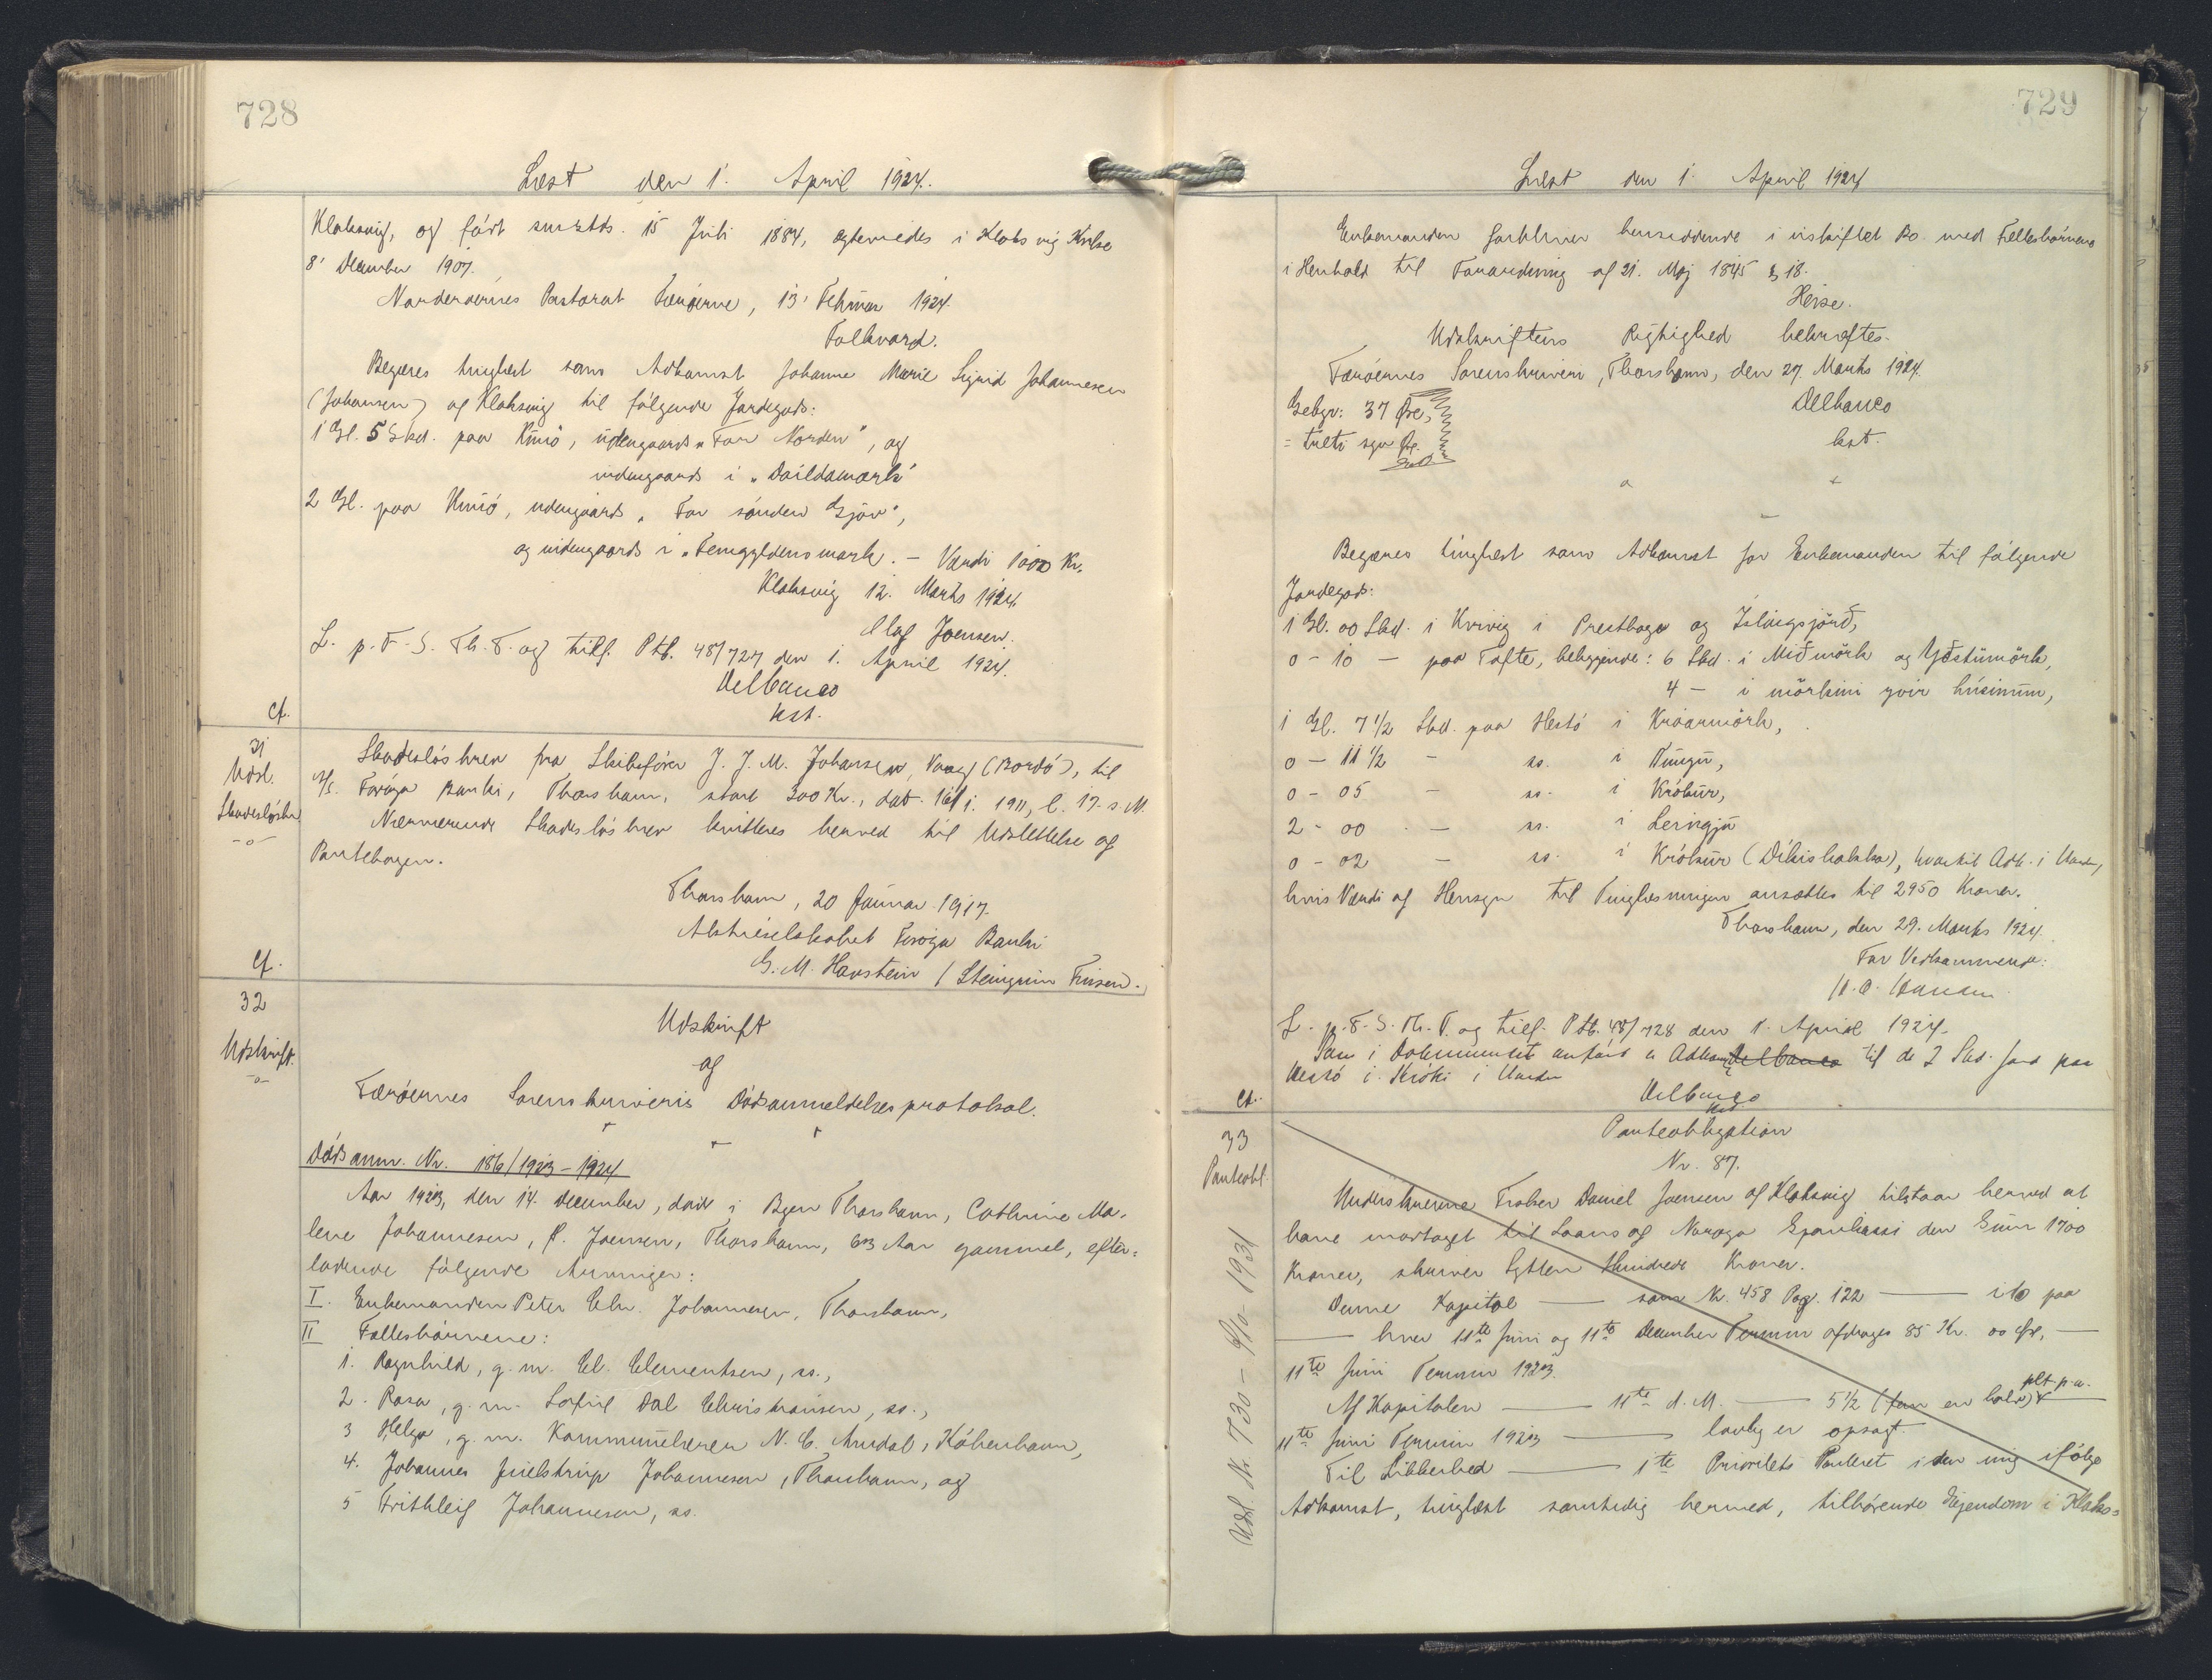 728
Læst den 1. April 1924.
Klaksvig, og født smstds. 15 Juli 1884, ægteviedes i Klaksvig Kirke
8' December 1907.
Norderøernes Pastorat Færøerne, 13' Februar 1924.
Falkvard.
Begæres tinglæst som Adkomst Johanne Marie Sigrid Johannesen
(Johansen) af Klaksvig til følgende Jordegods:
1 Gl. 5 Skd. paa Kunø, udengaards „For Norden", og
indengaards i „Daildamørk"
2 Gl. paa Kunø, udengaards „For sønden Gjøv",
og indengaards i „Femgyldensmørk". – Værdi 1000 Kr.
Klaksvig 12. Marts 1924.
Olaf Joensen.
L. p. F. S. Th. T. og tilf. Ptb. 48/727 den 1. April 1924.
Delbanco
kst.
cf.
31
Udsl.
Skadesløsbr.
-o-
Skadesløsbrev fra Skibsfører J. J. M. Johansen, Vaag (Bordø), til
A/S. Føroya Banki, Thorshavn, stort 300 Kr., dat. 16/1. 1911, l. 17. s. M.
Nærværende Skadesløsbrev kvitteres herved til Udslettelse af
Pantebogen.
Thorshavn, 20 Januar 1917.
Aktieselskabet Føroya Banki
G. M. Havstein / Steingrim Finsen.
cf.
32
Udskrift.
-o-
Udskrift
af
Færøernes Sorenskriveris Dødsanmeldelsesprotokol.
Dødsanm. Nr. 186/1923-1924
Aar 1923, den 14. December, døde i Byen Thorshavn, Cathrine Ma-
lene Johannesen, f. Joensen, Thorshavn, 63 Aar gammel, efter-
ladende følgende Arvinger:
I. Enkemanden Peter Chr. Johannesen, Thorshavn,
II Fællesbørnene:
1. Ragnhild, g. m. Cl. Clementsen, ss.,
2. Rosa, g. m. Sofus Dal Christiansen, ss.,
3 Helga, g. m. Kommunelærer N. C. Aradal, København,
4. Johannes Johannesen, Thorshavn, og
5 Frithleif Johannesen, ss.
729
Læst den 1. April 1924
Enkemanden forbliver hensiddende i uskiftet Bo med Fællesbørnene
i Henhold til Forordning af 21. Maj 1845 § 18.
Heise.
Udskriftens Rigtighed bekræftes.
Færøernes Sorenskriveri, Thorshavn, den 27. Marts 1924.
Delbanco
kst.
Gebyr: 37 Øre,
= tretti syv Øre.
Begæres tinglæst som Adkomst for Enkemanden til følgende
Jordegods:
1 Gl. 00 Skd. i Kvivig i Presthaga og Islingsjørð,
0 – 10 – paa Tofte, beliggende: 6 Skd. i Miðmørk og Yðstumørk,
4 – i mørkini yvir húsinum,
1 Gl. 7 1/2 Skd. paa Hestø i Króarmørk,
0 – 11 1/2 – ss. i Tungu,
0 – 05 – ss. i Krókur,
2 – 00 – ss. i Leringju
0 – 02 – ss. i Krókur (Díkishakka), hvortil Adk. i Orden,
hvis Værdi af Hensyn til Tinglæsningen ansættes til 2950 Kroner.
Thorshavn, den 29. Marts 1924.
For Vedkommende:
L. p. F. S. Th. T. og tilf. Ptb. 48/728 den 1. April 1924.
Som i Dokumentet anført er Adkomst Delbanco til de 2 Skd. Jord paa
Hestø i Króki i Orden
Delbanco
kst
cf.
33
Panteobl.
Udsl. Nr. 730 - 9/10 - 1931
Panteobligation
Nr. 87.
Underskrevne Fisker Daniel Joensen af Klaksvig tilstaar herved at
have modtaget til Laans af Norðoya Sparikassi den Sum 1700
Kroner, skriver Sytten Hundrede Kroner.
Denne Kapital — som Nr. 458 Pag. 122 — i to paa
— hver 11te Juni og 11te December Termin afdrages 85 Kr. 00 Øre, —
11te Juni Termin 1923.
Af Kapitalen — 11te d. M. — 5 1/2 (fem en halv) plt. p. a.
11te Juni Termin 1923 — lovlig er opsagt.
Til Sikkerhed — 1te Prioritets Panteret i den mig ifølge
Adkomst, tinglæst samtidig hermed, tilhørende Ejendom i Klaks-